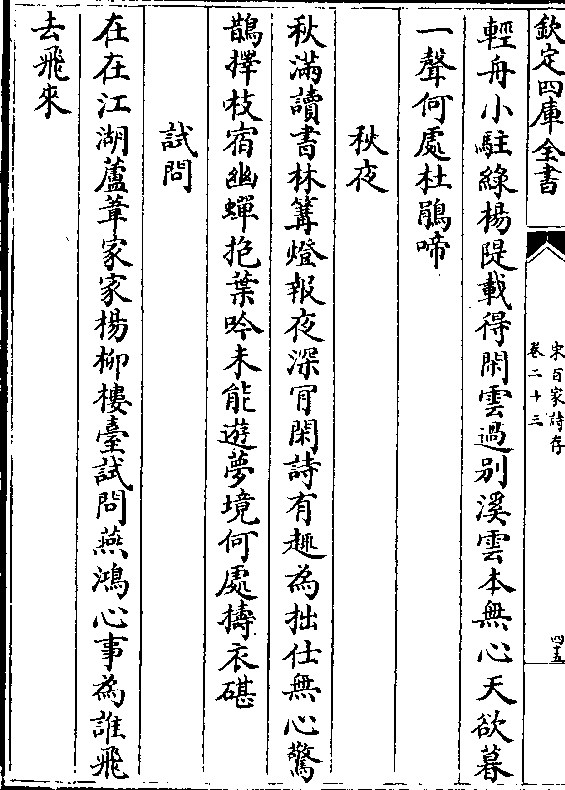 欽定四庫全書
宋百家詩存
卷二十三
四十五
輕舟小駐綠楊隄載得閑雲過别溪雲本無心天欲暮
一聲何處杜鵑啼
秋夜
秋滿讀書林篝燈報夜深冐閑詩有趣為拙仕無心驚
鵲擇枝宿幽蟬抱葉吟未能遊夢境何處擣衣碪
試問
在在江湖蘆葦家家楊柳樓臺試問燕鴻心事為誰飛
去飛來